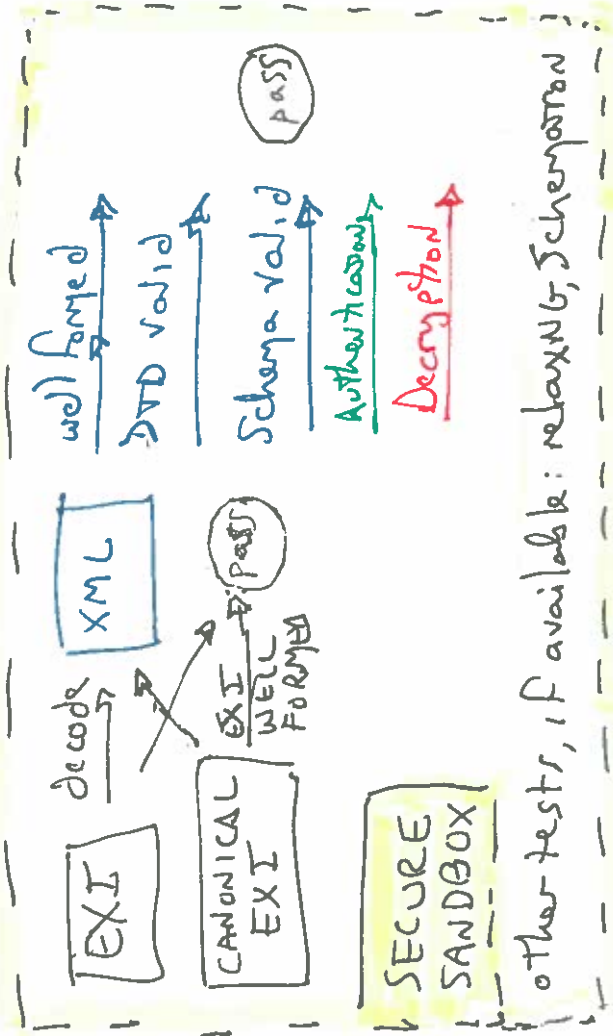 EXI
decode
XML
well formed
DTD valid
Schema valid
Authentication
Decryption
pass
CANONICAL
EXI
EXI
WELL
FORMED
pass
SECURE
SANDBOX
other tests, if available: relaxNG, Schematron